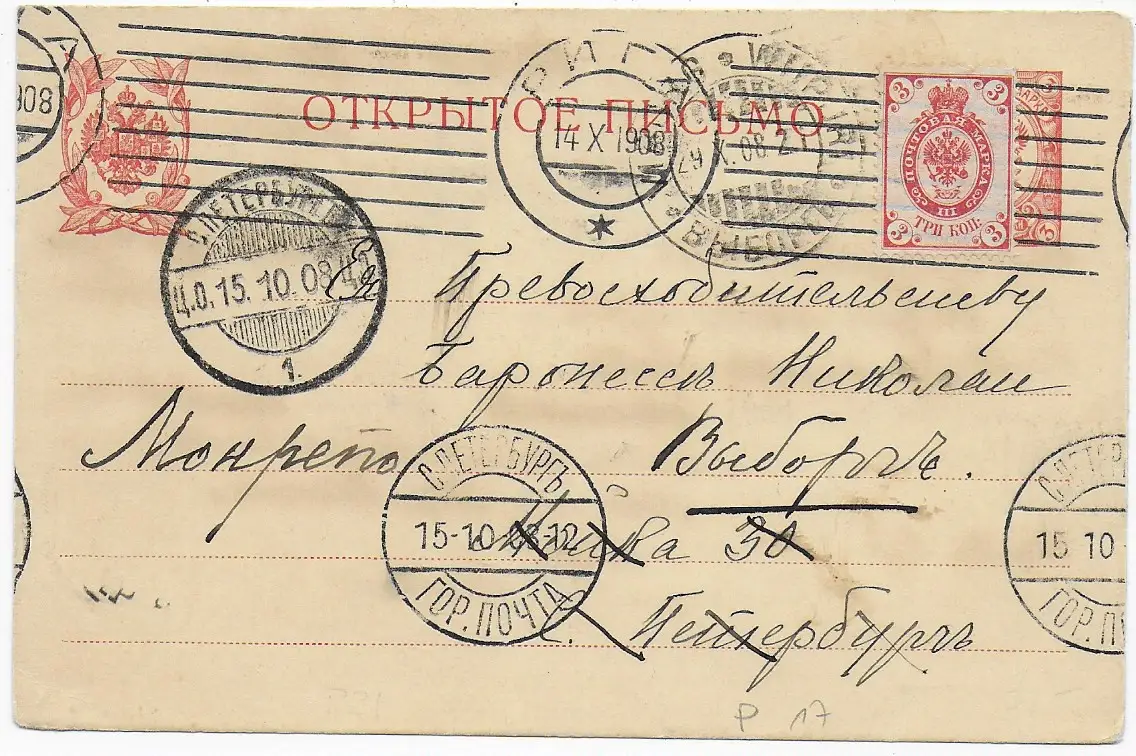 ОТКРЫТОЕ ПИСЬМО
РИГА
14 X 1908
908
WIIPURI
29.X.08.2
ВЫБОРГЪ
3 3
ПОЧТОВАЯ МАРКА
III
3 ТРИ КОП. 3
С.ПЕТЕРБУРГЪ
Ц.О.15.10.08
1.
Ея Превосходительству
Баронессѣ Николаи
Монрепо Выборгъ.
Мойка 30
С. Петербургъ
С.ПЕТЕРБУРГЪ
15-10-08-12
ГОР. ПОЧТА
С.ПЕТЕР
15 10
ГОР. П
P 17